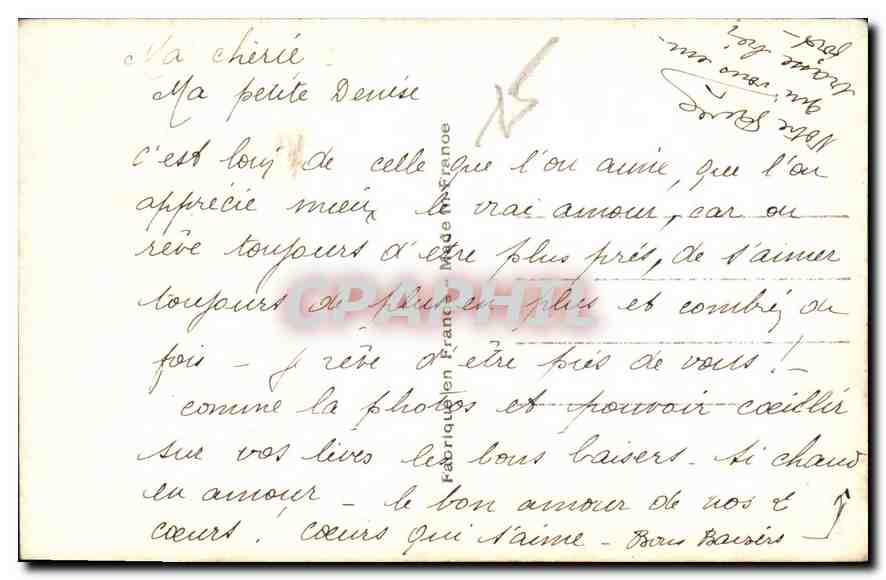 Ma chérie
Ma petite Denise
15
c'est loin de celle que l'on aime, que l'on
apprécie mieux le vrai amour, car on
rêve toujours d'etre plus près, de s'aimer
toujours de plus en plus et combien de
fois - j rêve d'être près de vous ! -
comme la photos et pouvoir cœillir
sur vos lèves les bons baisers - si chaud
en amour - le bon amour de nos 2
cœurs ! cœurs qui s'aime - Bons Baisers -
Votre
qui vous em-
Fabriqué en France - Made in France
CPAPHIL